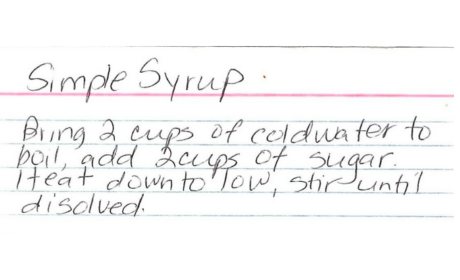 Simple Syrup
Bring 2 cups of cold water to
boil, add 2 cups of sugar.
Heat down to low, stir until
disolved.